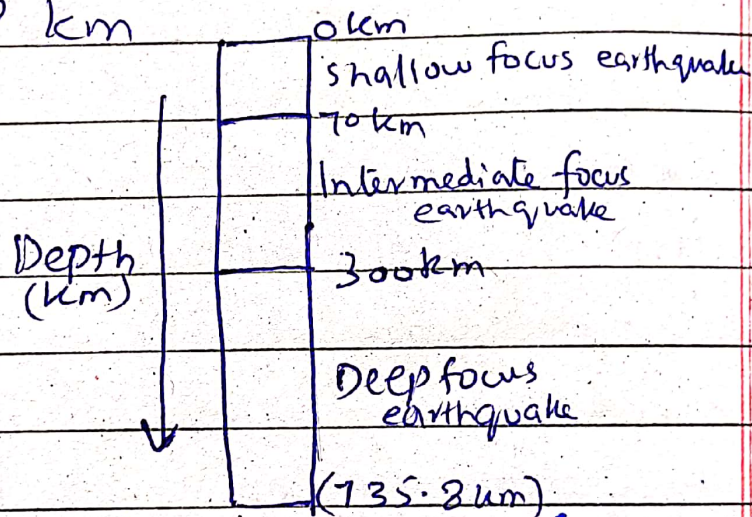 km
0 km
shallow focus earthquake
70 km
Intermediate focus
earthquake
Depth
(km)
300km
Deep focus
earthquake
(735.8 km)